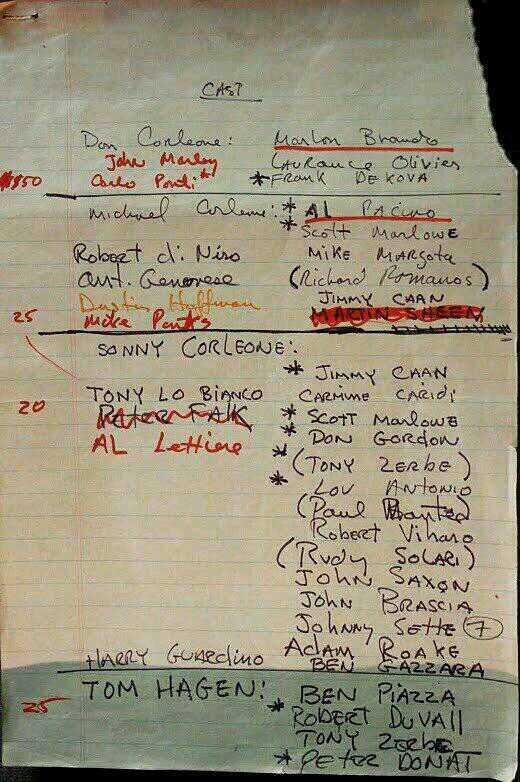 CAST
Don Corleone: Marlon Brando
John Marley Laurance Olivier
Carlo Ponti* *FRANK DEKOVA
Michael Corleone: * AL PACINO
* Scott Marlowe
Robert di Niro MIKE MARGOTA
Ant. Genovese (Richard Romanos)
Dustin Hoffman JIMMY CAAN
25 Mike Parks MARTIN SHEEN
SONNY CORLEONE:
* JIMMY CAAN
TONY LO BIANCO CARMINE CARIDI
20 Peter FALK * SCOTT MARLOWE
AL Lettiere * DON GORDON
* (TONY ZERBE)
* LOU ANTONIO
(Paul )
Robert Viharo
(RUDY SOLARI)
JOHN SAXON
JOHN BRASCIA
Johnny SETTE 7
Adam ROAKE
HARRY GUARDINO BEN GAZZARA
TOM HAGEN: BEN PIAZZA
25 * ROBERT DUVALL
TONY ZERBE
* PETER DONAT